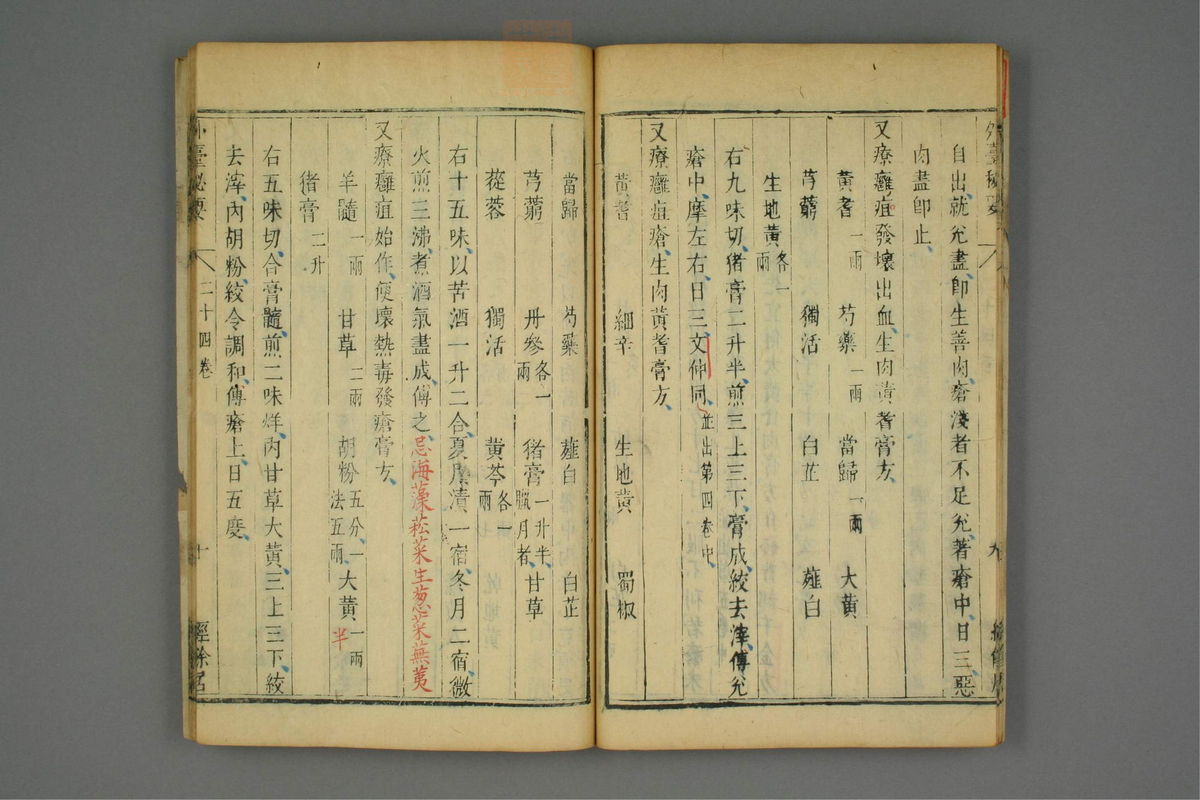 自出、就兊盡、卽生善肉、瘡淺者不足兊、著瘡中、日三、惡
肉盡卽止、
又療癰疽發壞出血、生肉黃耆膏方、
黃耆一兩 芍藥一兩 當歸一兩 大黃
芎藭 獨活 白芷 薤白
生地黃各一兩
右九味切、猪膏二升半、煎三上三下、膏成絞去滓、傅兊
瘡中、摩左右、日三、文仲同、並出第四卷中、
又療癰疽瘡、生肉黃耆膏方、
黃耆 細辛 生地黃 蜀椒
當歸 芍藥 薤白 白芷
芎藭 丹參各一兩 猪膏一升半、臘月者、 甘草
蓯蓉 獨活 黃芩各一兩
右十五味、以苦酒一升二合、夏月漬一宿、冬月二宿、微
火煎三沸、煮酒氣盡成、傅之、忌海藻菘菜生葱菜蕪荑
又療癰疽始作、便壞熱毒發瘡膏方、
羊髓一兩 甘草二兩 胡粉五分、一法五兩、 大黃一兩半
猪膏二升
右五味切、合膏髓、煎二味烊、內甘草大黃、三上三下、絞
去滓、內胡粉、絞令調和、傅瘡上、日五度、
外臺秘要 二十四卷 十 經餘居